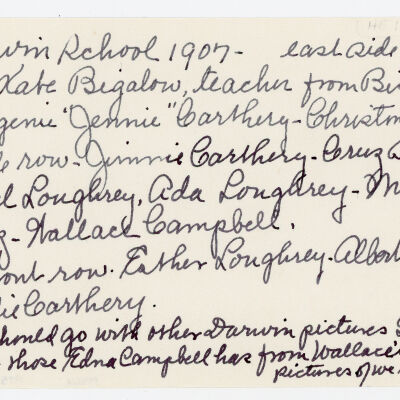 win School 1907- east side
Kate Bigalow, teacher from Bi
genie "Jennie" Carthery - Christm
le row - Jimmie Carthery - Cruz
el Loughrey, Ada Loughrey - M
z - Wallace Campbell.
ont row. Esther Loughrey - Albert
ie Carthery.
should go with other Darwin pictures
those Edna Campbell has from Wallace's
pictures of we